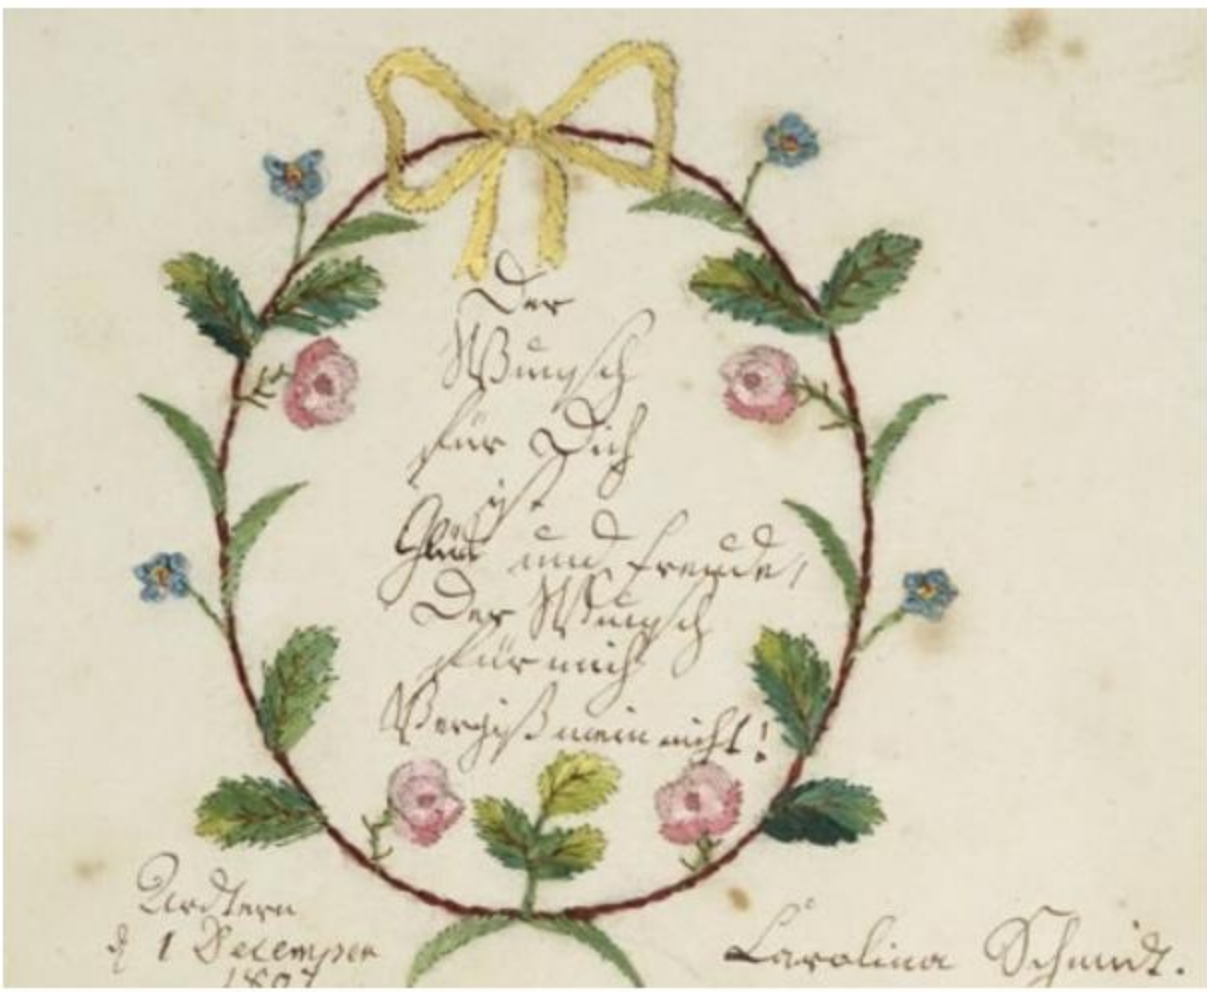 Der
Wunsch
für Dich
ist
Glük und Freude,
Der Wunsch
für mich
Vergiß mein nicht!
Ardtern
d 1 Decemper
1807
Carolina Schmidt.